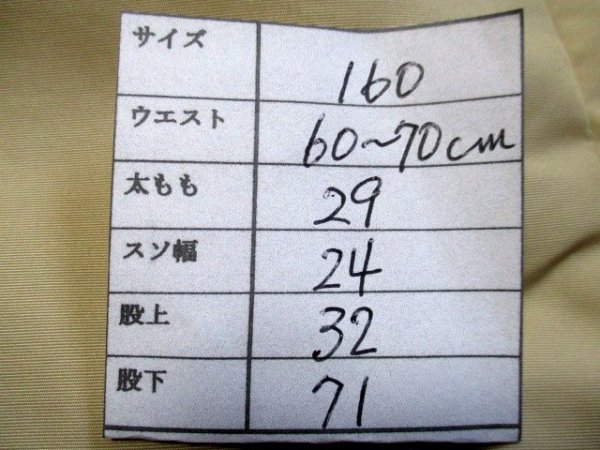 サイズ 160
ウエスト 60~70cm
太もも 29
スソ幅 24
股上 32
股下 71